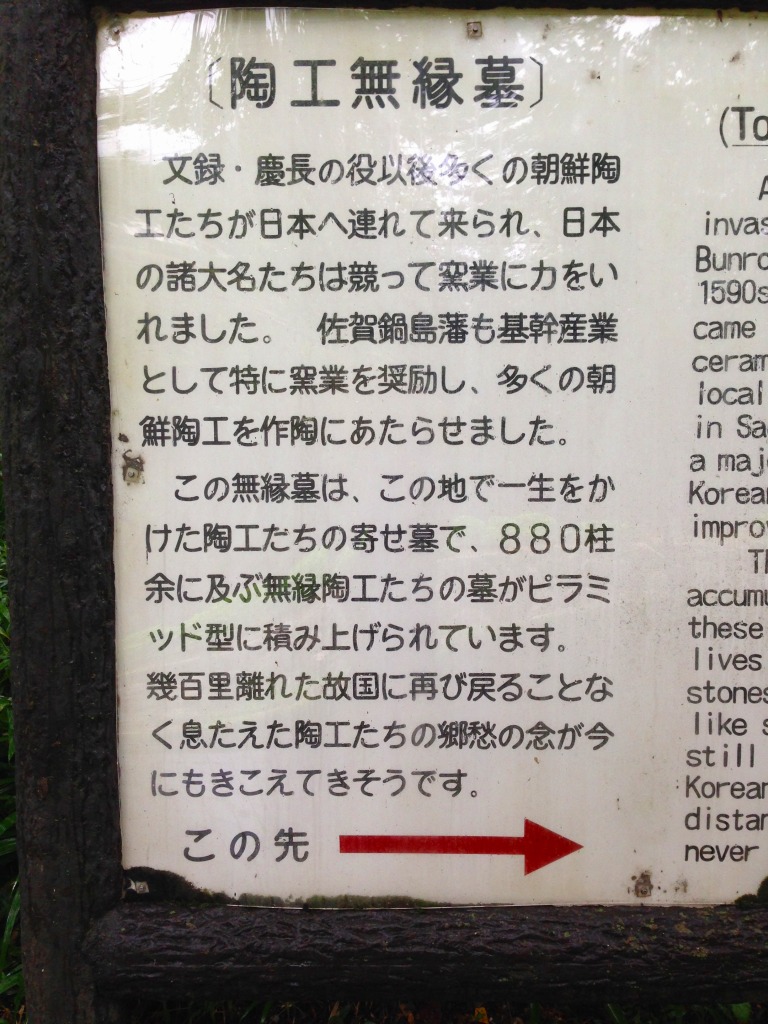 〔陶工無縁墓〕
文録・慶長の役以後多くの朝鮮陶
工たちが日本へ連れて来られ、日本
の諸大名たちは競って窯業に力をい
れました。 佐賀鍋島藩も基幹産業
として特に窯業を奨励し、多くの朝
鮮陶工を作陶にあたらせました。
この無縁墓は、この地で一生をか
けた陶工たちの寄せ墓で、880柱
余に及ぶ無縁陶工たちの墓がピラミ
ッド型に積み上げられています。
幾百里離れた故国に再び戻ることな
く息たえた陶工たちの郷愁の念が今
にもきこえてきそうです。
この先
(To
A
invas
Bunro
1590s
came
ceram
local
in Sa
a majo
Korean
improv
Th
accumu
these
lives
stones
like s
still
Korean
distan
never